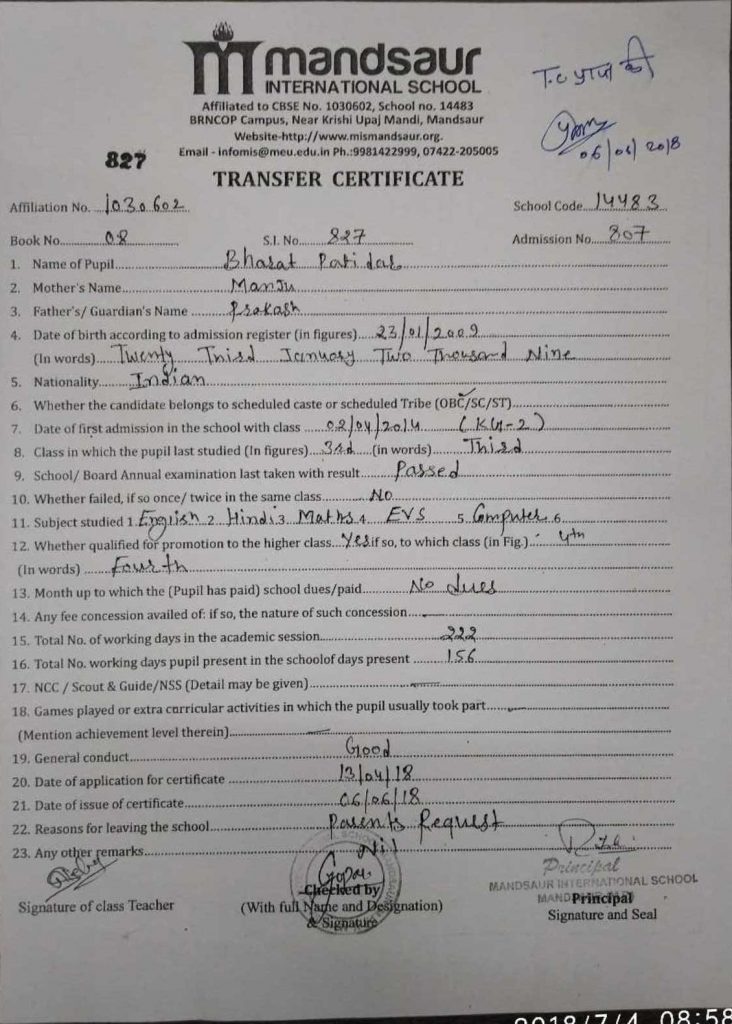 mandsaur
INTERNATIONAL SCHOOL
Affiliated to CBSE No. 1030602, School no. 14483
BRNCOP Campus, Near Krishi Upaj Mandi, Mandsaur
Website-http://www.mismandsaur.org.
Email - infomis@meu.edu.in Ph.:9981422999, 07422-205005
T.C प्राप्त की
06/06/2018
827
TRANSFER CERTIFICATE
Affiliation No. 1030602 School Code 14483
Book No. 08 S.I. No. 827 Admission No. 807
1. Name of Pupil Bharat Patidar
2. Mother's Name Manju
3. Father's/ Guardian's Name Prakash
4. Date of birth according to admission register (in figures) 23/01/2009
(In words) Twenty Third January Two Thousand Nine
5. Nationality Indian
6. Whether the candidate belongs to scheduled caste or scheduled Tribe (OBC/SC/ST)
7. Date of first admission in the school with class 02/04/2014 (KG-2)
8. Class in which the pupil last studied (In figures) 3rd (in words) Third
9. School/ Board Annual examination last taken with result Passed
10. Whether failed, if so once/ twice in the same class No
11. Subject studied 1. English 2 Hindi 3 Maths 4 EVS 5. Computer 6
12. Whether qualified for promotion to the higher class Yes if so, to which class (in Fig.) 4th
(In words) Fourth
13. Month up to which the (Pupil has paid) school dues/paid No dues
14. Any fee concession availed of: if so, the nature of such concession
15. Total No. of working days in the academic session 222
16. Total No. working days pupil present in the schoolof days present 156
17. NCC / Scout & Guide/NSS (Detail may be given)
18. Games played or extra curricular activities in which the pupil usually took part
(Mention achievement level therein)
19. General conduct Good
20. Date of application for certificate 13/04/18
21. Date of issue of certificate 06/06/18
22. Reasons for leaving the school Parents Request
23. Any other remarks Nil
Principal
MANDSAUR INTERNATIONAL SCHOOL
Checked by
Principal
Signature of class Teacher (With full Name and Designation) Signature and Seal
& Signature
2018/7/4 08:58